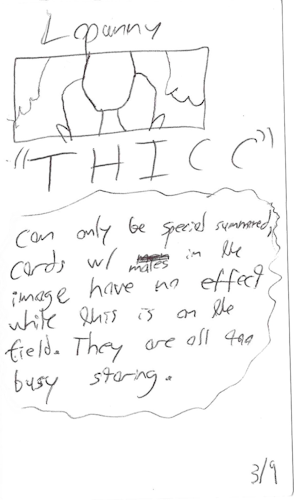 Lopunny
"THICC"
Can only be special summoned,
cards w/ males in the
image have no effect
while this is on the
field. They are all too
busy staring.
3/9